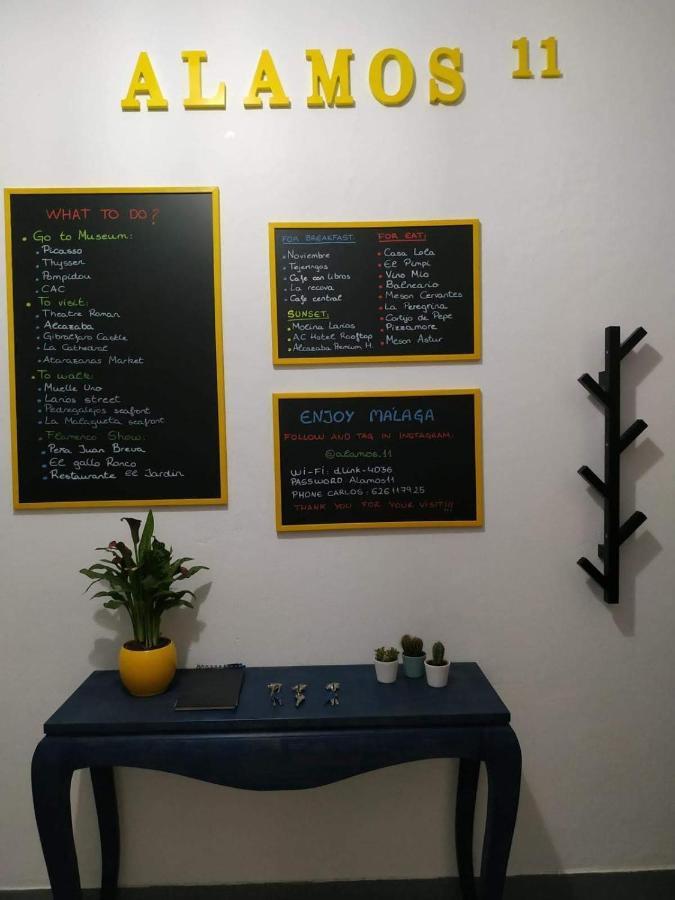 ALAMOS 11
WHAT TO DO?
Go to Museum:
Picasso
Thyssen
Pompidou
CAC
To visit:
Theatre Roman
Alcazaba
Gibralfaro Castle
La Cathedral
Atarazanas Market
To walk:
Muelle Uno
Larios street
Pedregalejos seafont
La Malagueta seafont
Flamenco Show:
Peña Juan Breva
El gallo Ronco
Restaurante El Jardin
FOR BREAKFAST:
Noviembre
Tejeringos
Cafe con libros
La recova
Cafe central
SUNSET:
Molina Larios
AC Hotel Rooftop
Alcazaba Premium H.
FOR EAT:
Casa Lola
El Pimpi
Vino Mio
Balneario
Meson Cervantes
La Peregrina
Cortijo de Pepe
Pizzamore
Meson Astur
ENJOY MÁLAGA
FOLLOW AND TAG IN INSTAGRAM:
@alamos.11
Wi-Fi: dLink-4036
PASSWORD Alamos11
PHONE CARLOS: 626117925
THANK YOU FOR YOUR VISIT!!!